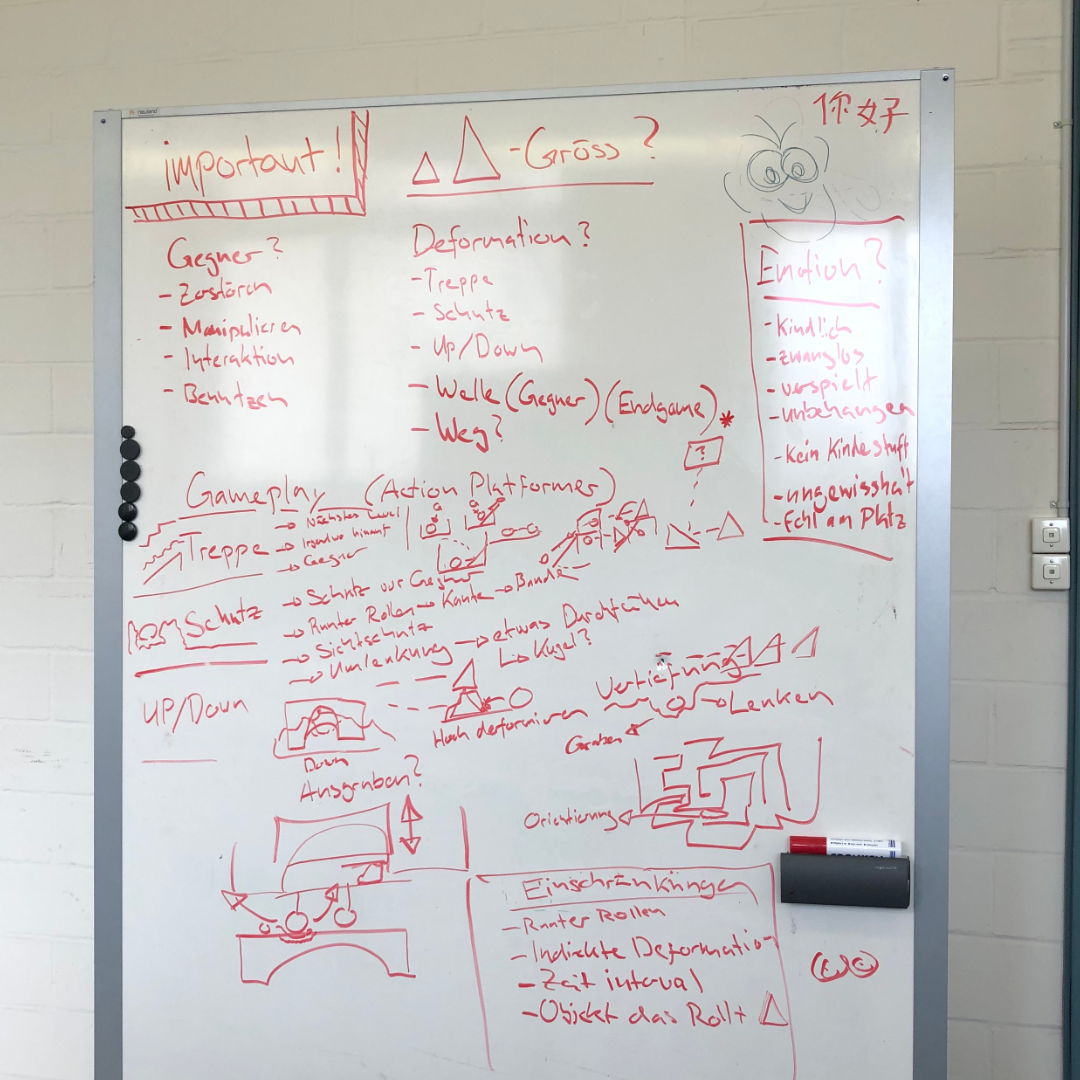 neuland
你好
important!
-Gröss?
Gegner?
- Zerstören
- Manipulieren
- Interaktion
- Benutzen
Deformation?
- Treppe
- Schutz
- UP/Down
- Welle (Gegner) (Endgame) *
- Weg?
?
Emotion?
- Kindlich
- zwanglos
- verspielt
- unbehangen
- Kein Kinde stuff
- ungewissheit
- Fehl am Platz
Gameplay (Action Platformer)
Treppe
→ Nächstes Level
→ Irgendwo hinauf
→ Gegner
Schutz
→ Schutz vor Gegner
→ Runter Rollen → Kante → Bande
→ Sichtschutz
→ Umlenkung → etwas Durchführen
↳ Kugel?
UP/Down
Down
Ausgraben?
Hoch deformieren
Vertiefung
→ Lenken
Graben
Orientierung
Einschränkungen
- Runter Rollen
- Indirekte Deformation
- Zeit interval
- Objekt das Rollt